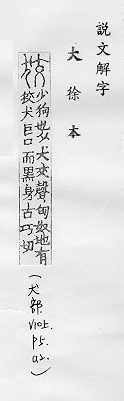 說文解字
大徐本
狡 少狗也从犬交聲匈奴地有
狡犬巨口而黑身古巧切
(犬部. V10上. P5. a2.)